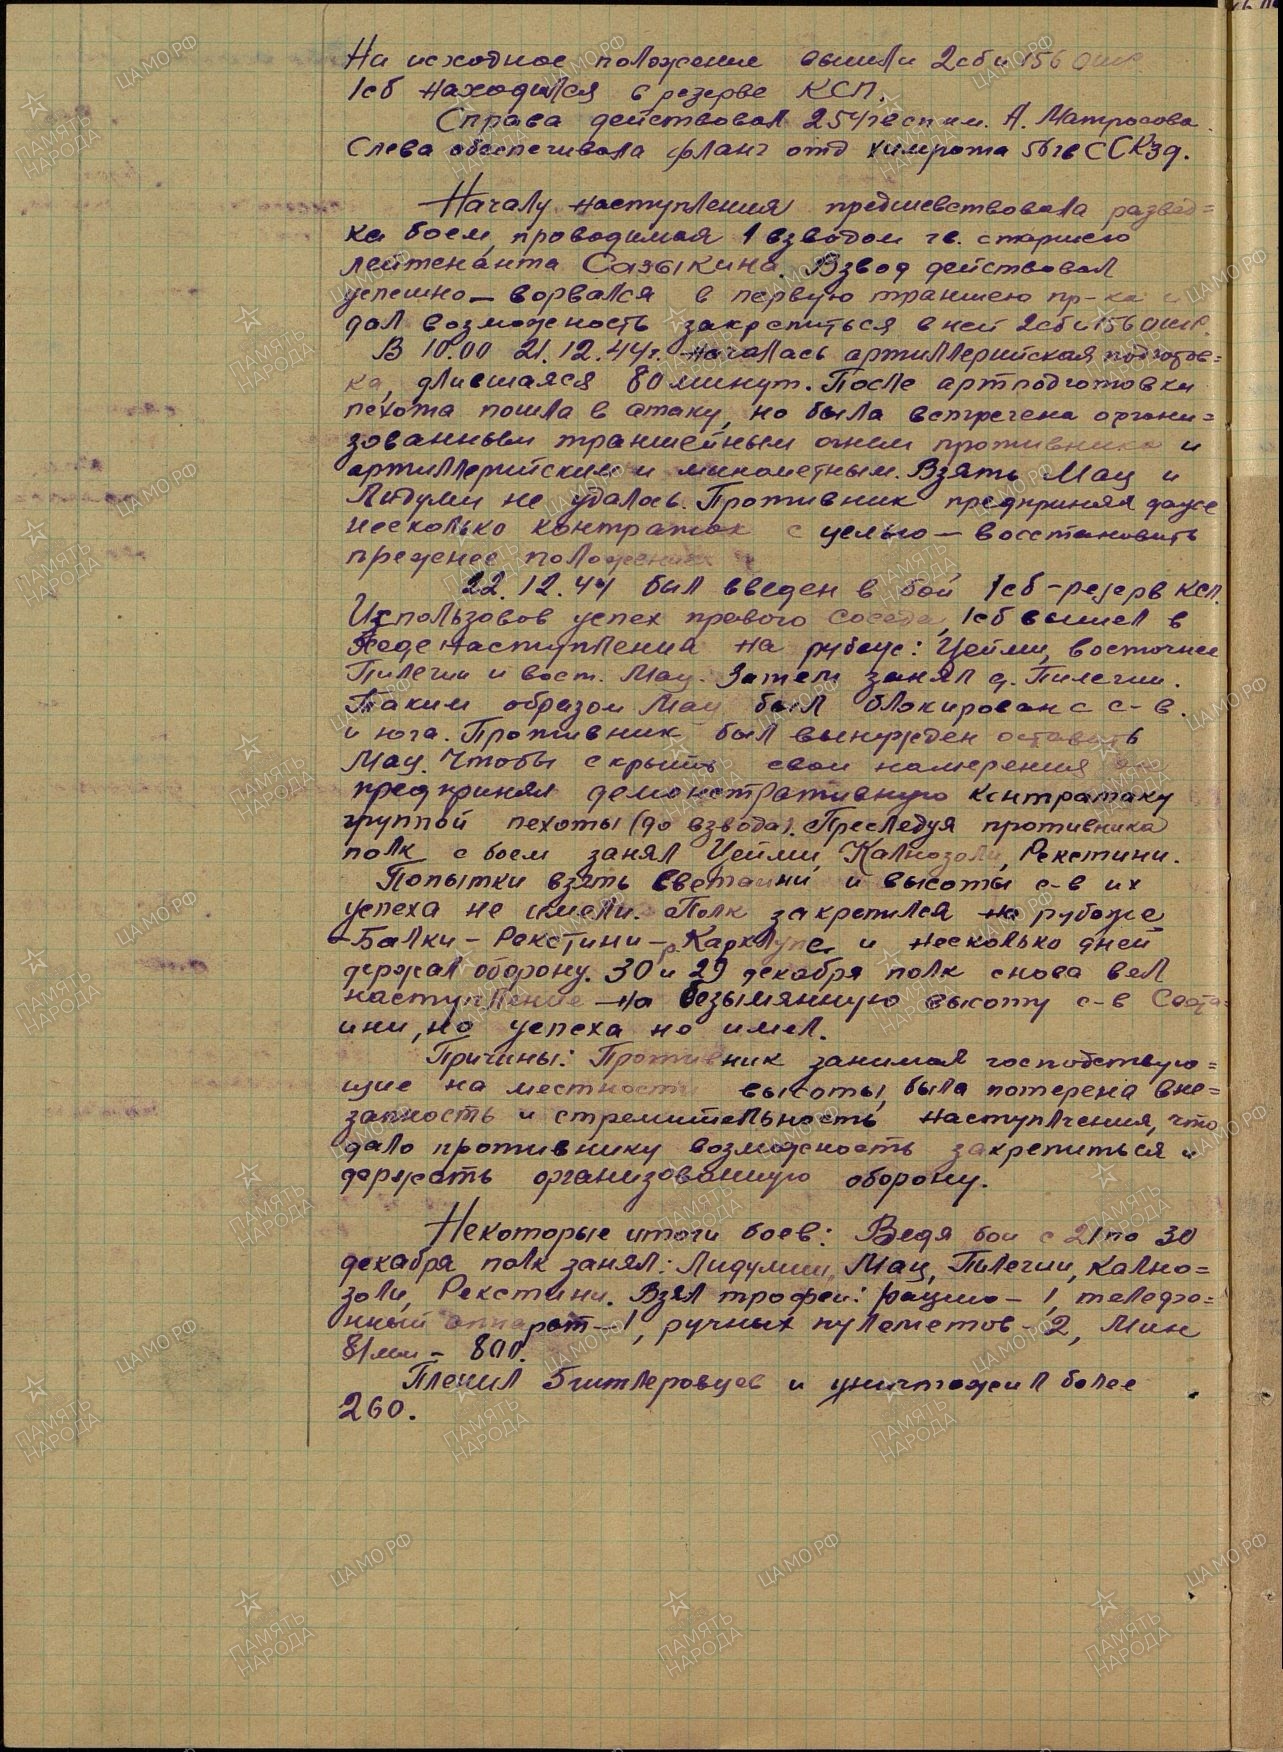 На исходное положение вышли 2сб и 156 ошр
1сб находился в резерве КСП.
Справа действовал 254гвсп им. А. Матросова.
Слева обеспечивала фланг отд химрота 56гвССКЗд.
Началу наступления предшевствовала развед=
ка боем, проводимая 1 взводом гв. старшего
лейтенанта Сазыкина. Взвод действовал
успешно – ворвался в первую траншею пр-ка и
дал возможность закрепиться в ней 2сб и 156 ошр.
В 10.00 21.12.44г. началась артиллерийская подготов=
ка, длившаяся 80 минут. После артподготовки
пехота пошла в атаку, но была встречена органи=
зованным траншейным огнем противника и
артиллерийским и минометным. Взять Мац и
Лидуми не удалось. Противник предпринял даже
несколько контратак с целью – восстановить
прежнее положение
22.12.44 был введен в бой 1сб – резерв КСП.
Использовав успех правого соседа, 1сб вышел в
ходе наступления на рубеж: Цейми, восточнее
Пилегии и вост. Мац. Затем занял д. Пилегии.
Таким образом Мац был блокирован с с-в.
и юга. Противник был вынужден оставить
Мац. Чтобы скрыть свои намерения он
предпринял демонстративную контратаку
группой пехоты (до взвода). Преследуя противника
полк с боем занял Цейми, Калнозоли, Рекстини.
Попытки взять Светаини и высоты с-в их
успеха не имели. Полк закрепился на рубеже
– Балки – Рекстини – р. Карклупе и несколько дней
держал оборону. 30 и 29 декабря полк снова вел
наступление на безымянную высоту с-в Света=
ини, но успеха не имел.
Причины: Противник занимал господствую=
щие на местности высоты, была потерена вне=
запность и стремительность наступления, что
дало противнику возможность закрепиться и
держать организованную оборону.
Некоторые итоги боев: Ведя бои с 21 по 30
декабря полк занял: Лидумии, Мац, Пилегии, Кално=
золи, Рекстини. Взял трофеи: рацию – 1, телефо=
нный аппарат – 1, ручных пулеметов – 2, Мин
81мм – 800.
Пленил 5 гитлеровцев и уничтожил более
260.
ПАМЯТЬ НАРОДА
ЦАМО.РФ